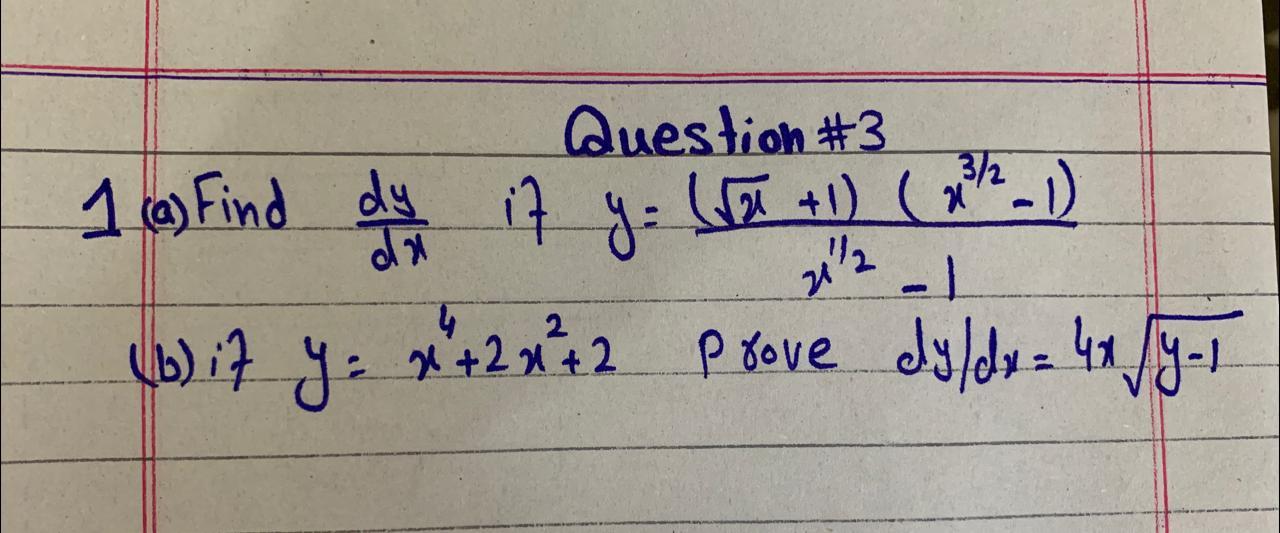 Question #3
1 (a) Find dy/dx if y = (√x + 1) (x^3/2 - 1) / x^1/2 - 1
(b) if y = x^4 + 2x^2 + 2 Prove dy/dx = 4x √y-1